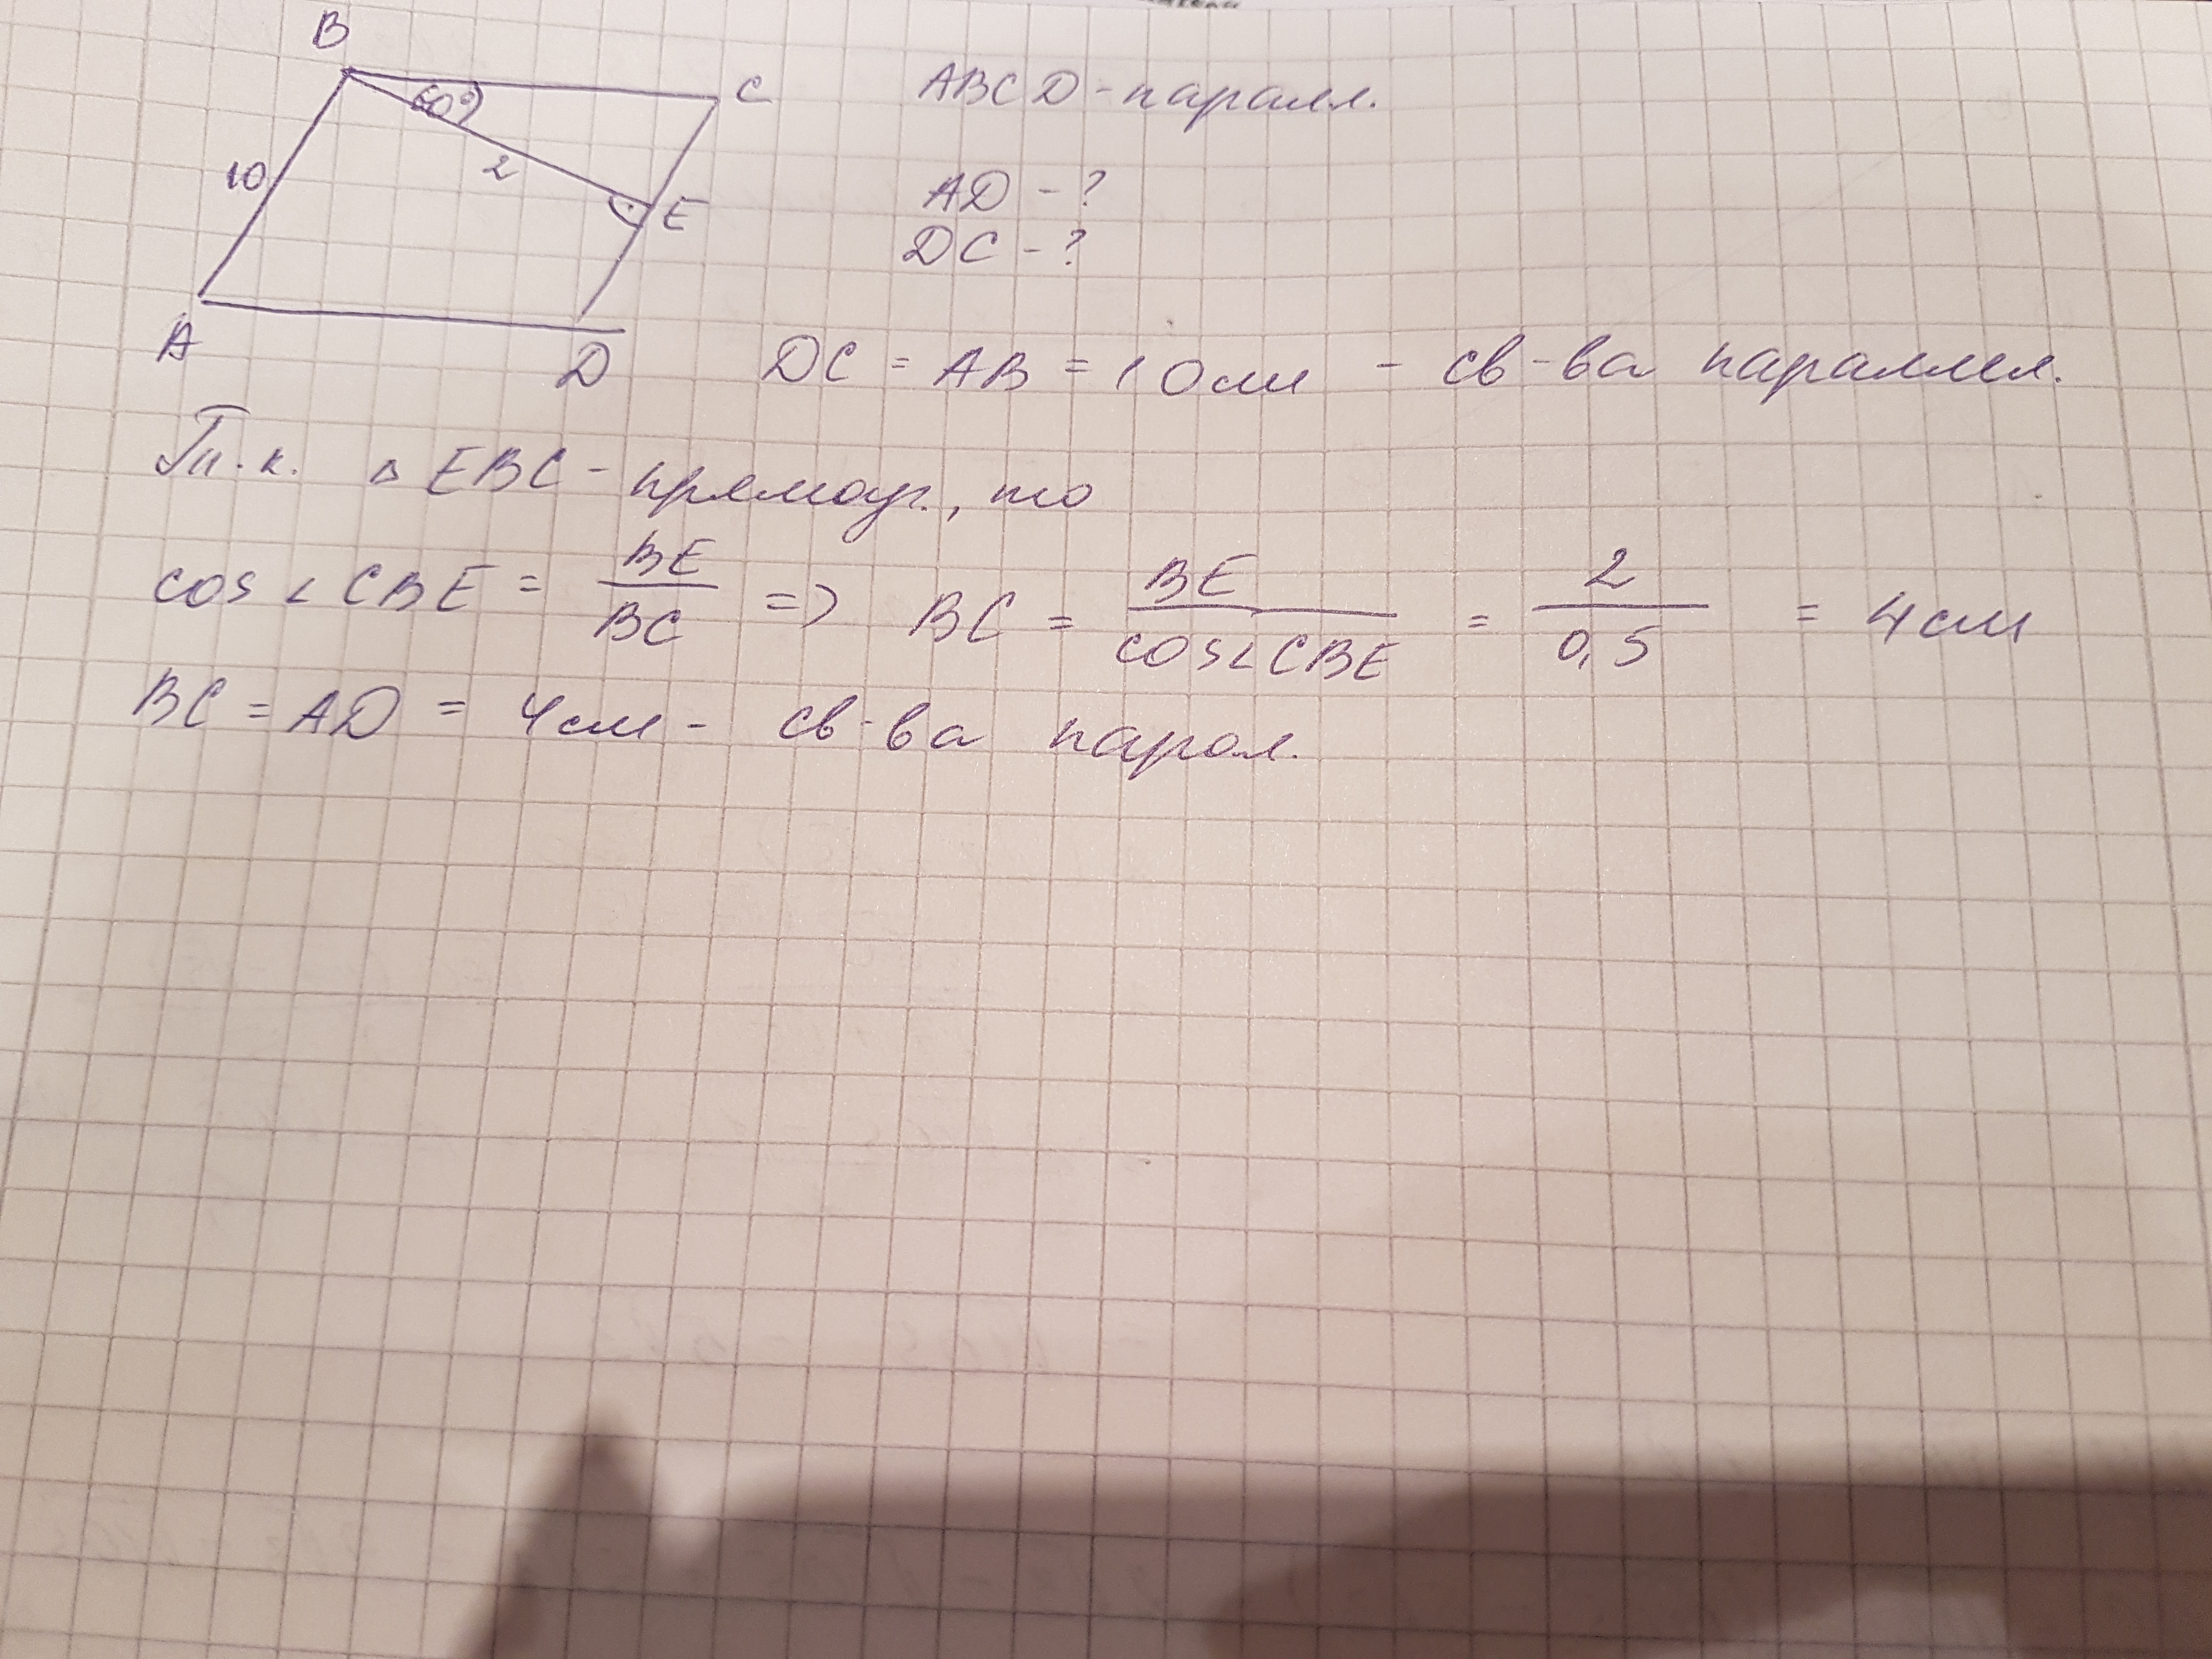 B
C
60°
10
2
E
A
D
ABCD - паралл.
AD - ?
DC - ?
DC = AB = 10см - св-ва параллел.
Т.к. △ EBC - прямоуг., то
cos ∠ CBE = BE/BC => BC = BE/cos∠CBE = 2/0,5 = 4см
BC = AD = 4см - св-ва парал.